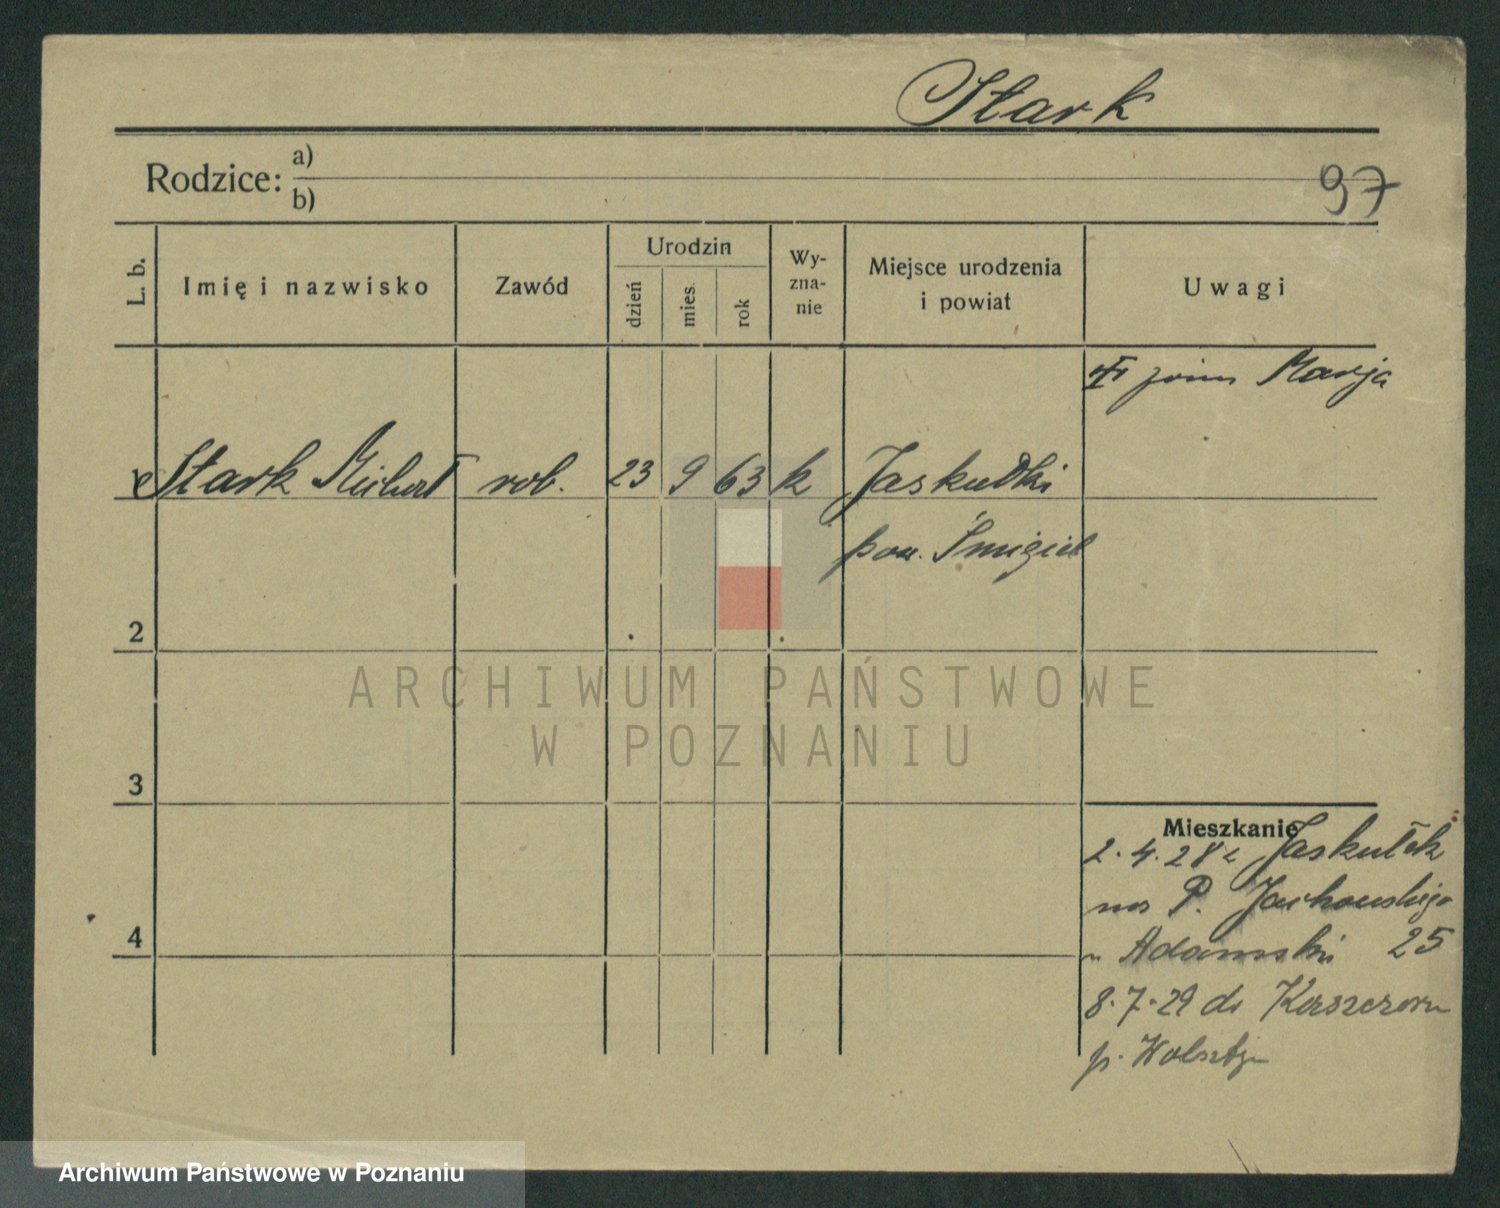 Stark
Rodzice: a)
b)
97
L. b.
Imię i nazwisko
Zawód
Urodzin
dzień
mies.
rok
Wy-
zna-
nie
Miejsce urodzenia
i powiat
Uwagi
Marja
1 Stark rob. 23 9 63 k Jaskułki
pow. Śmigiel
2
3
4
Mieszkanie
2.4.28 z Jaskułek
P. Jackowskiego
Adamski 25
8.7.29 do
p. Wolsztyn
ARCHIWUM PAŃSTWOWE
W POZNANIU
Archiwum Państwowe w Poznaniu